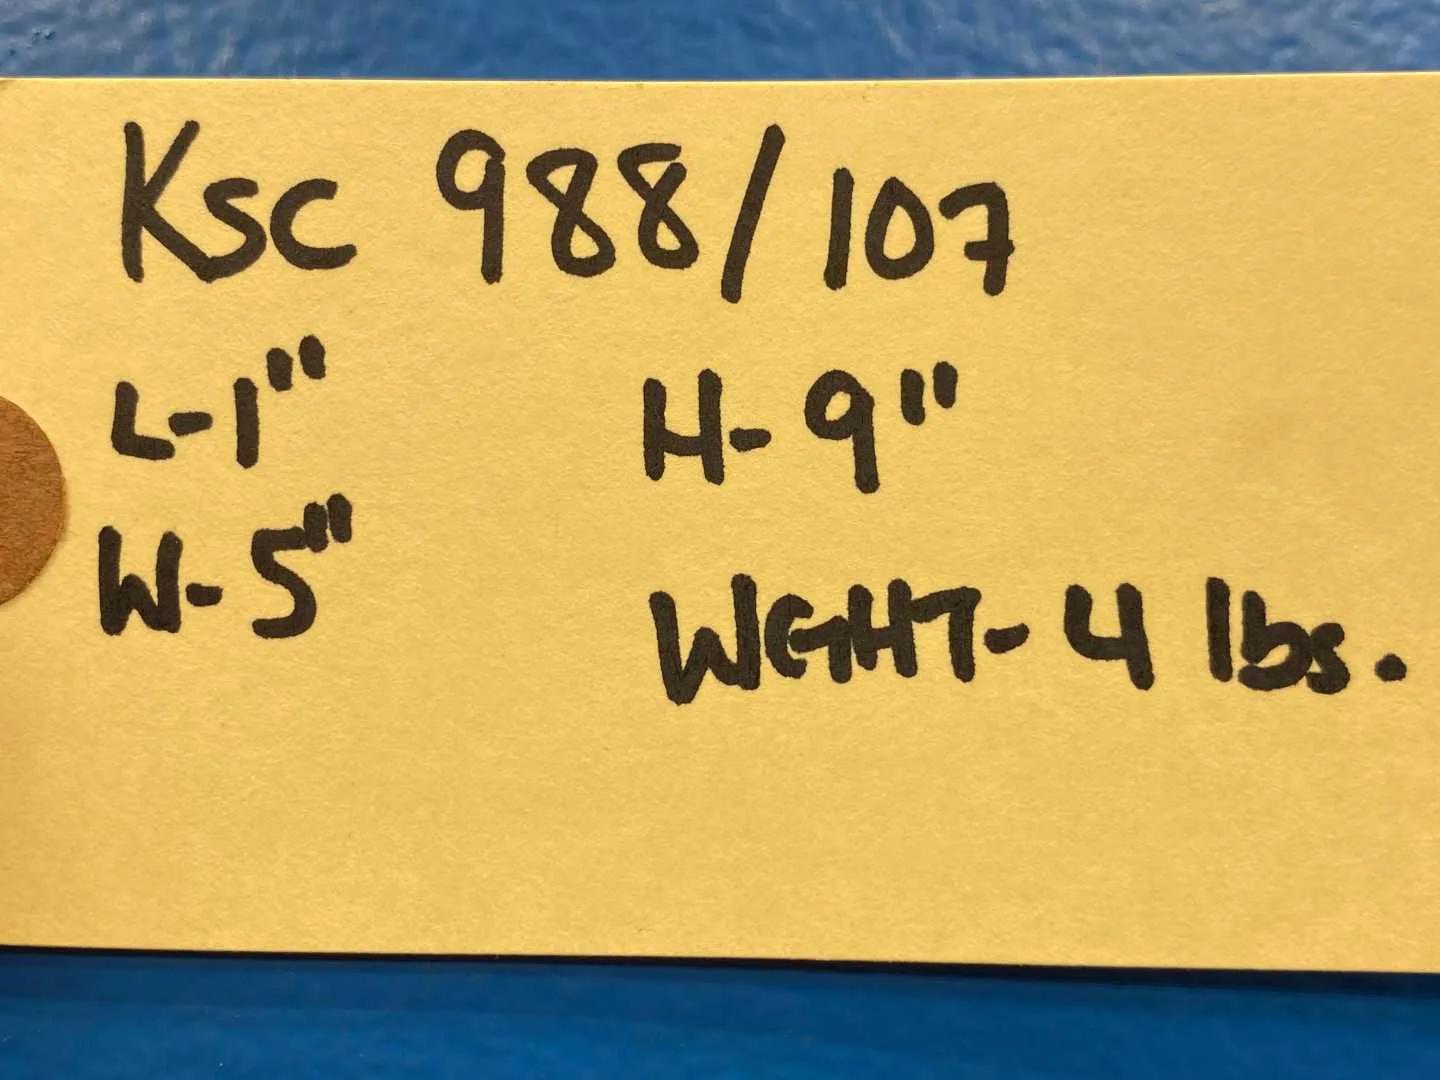 Ksc 988/107
L-1" H-9"
W-5"
WGHT-4 lbs.